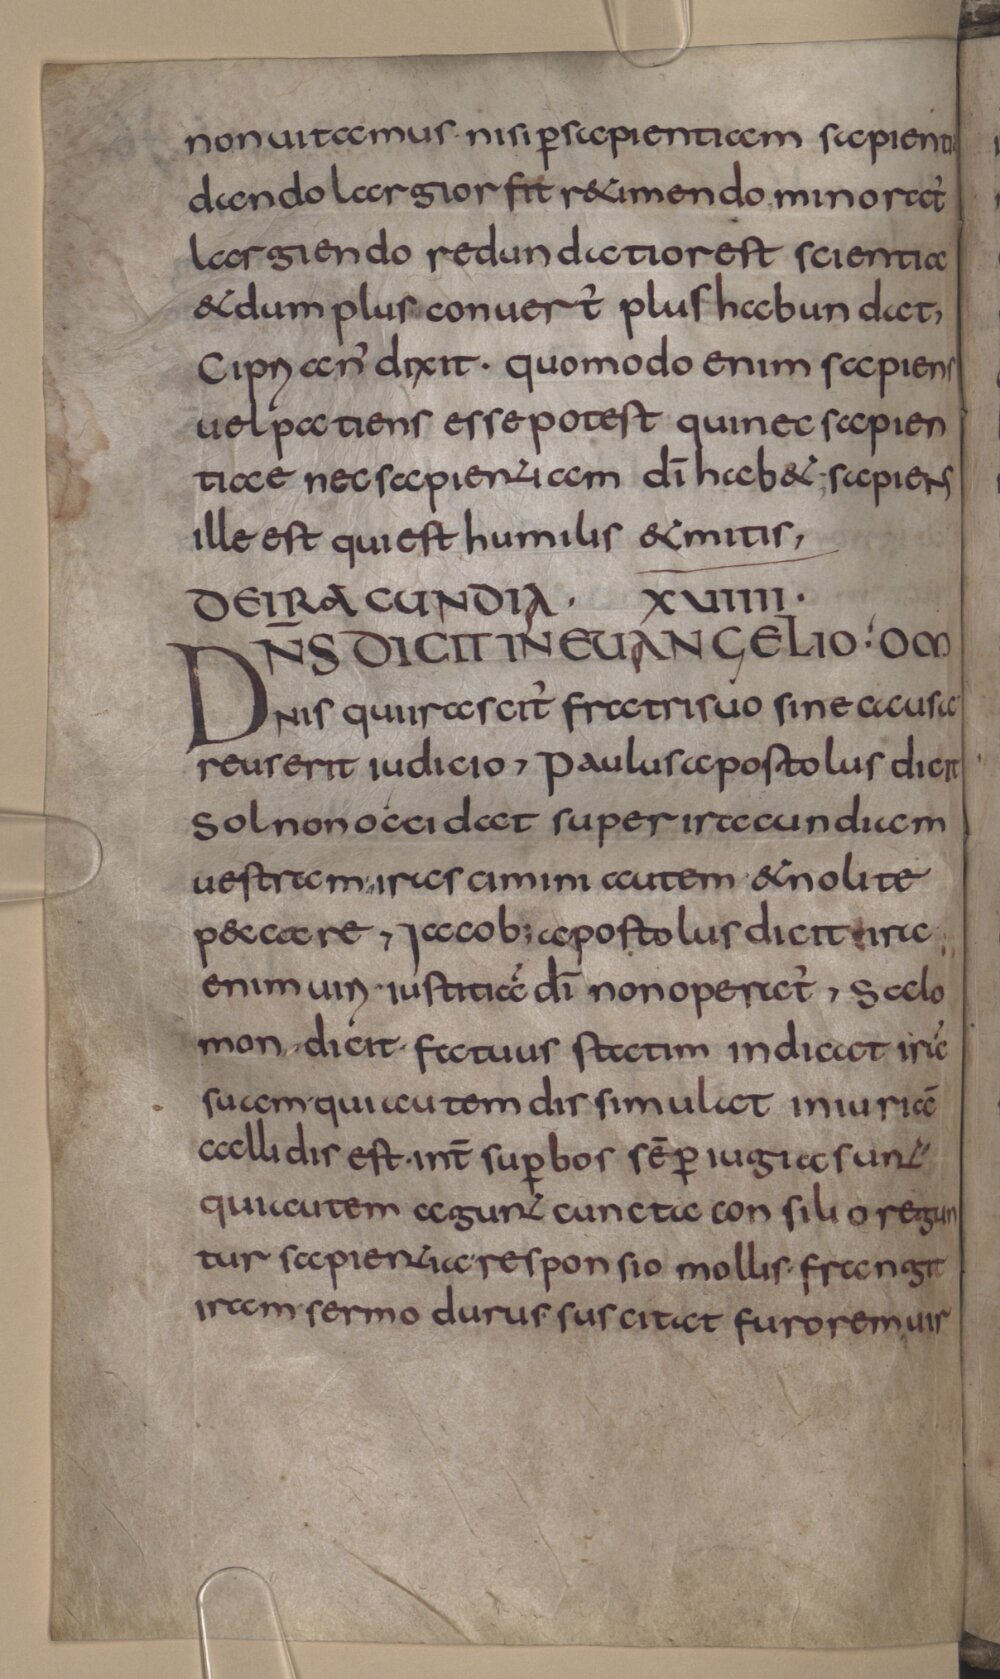 non uitamus· nisi p̲ sapientiam sapienti
dando largior fit r&imendo minorat᷑
largiendo redundatior est scientia
&dum plus conuert᷑ plus habundat,
Cipꝶ an̄ dixit· quomodo enim sapiens
uel patiens esse potest qui nec sapien
tiae nec sapientiam dī hab&; sapiens
ille est qui est humilis & mitis,
DE IRACUNDIA· XVIIII·
DN̄S DICIT IN EUANGELIO: OM
NIS qui irascit᷑ fratri suo sine causa
reus erit iudicio, Paulus apostolus dicit
Sol non occidat super iracundiam
uestram, irascimini autem & nolite
peccare, Jacob; apostolus dicit ira
enim uiꝶ iustitiā dī non operat᷑, Salo
mon dicit· fatuus statim indicat irā
suam· qui autem dissimulat iniuriā
callidis est· int̄ sup̲bos sēp̲ iugia sunt
qui autem agunt cuncta consilio regun
tur sapientia· responsio mollis frangit
iram· sermo durus suscitat furorem uir